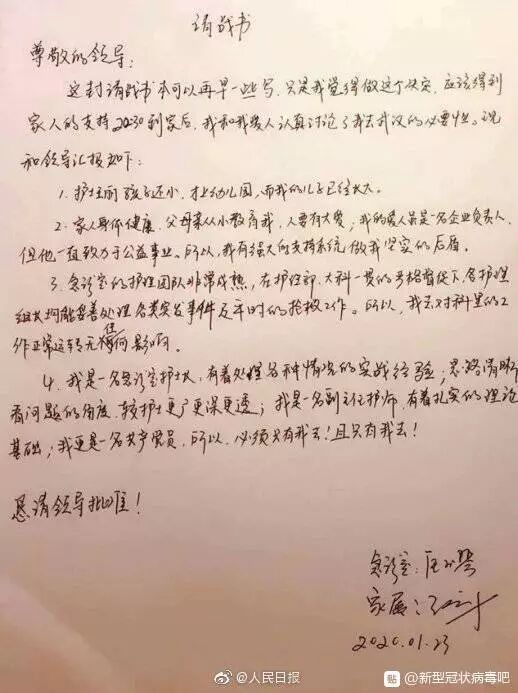 请战书
尊敬的领导:
这封请战书本可以再早一些写,只是我觉得做这个决定,应该得到
家人的支持,20:30到家后,我和我爱人认真讨论了我去武汉的必要性。现
和领导汇报如下:
1. 护士们孩子还小,才上幼儿园,而我的儿子已经长大。
2. 家人身体健康,父母亲从小教育我,人要有大爱;我的爱人虽是一名企业负责人,
但他一直致力于公益事业。所以,我有强大的支持系统做我坚实的后盾。
3. 急诊室的护理团队非常成熟,在护理部、大科一贯的严格督促下,各护理
组长均能妥善处理各类突发事件及平时的抢救工作。所以,我去对科里的工
作正常运转无任何影响。
4. 我是一名急诊室护士长,有着处理各种情况的实战经验;思路清晰,
看问题的角度,较护士更广更深更透;我是一名副主任护师,有着扎实的理论
基础;我更是一名共产党员,所以,必须只有我去!且只有我去!
恳请领导批准!
急诊室:
家属:
2020.01.23
@人民日报
贴 @新型冠状病毒吧